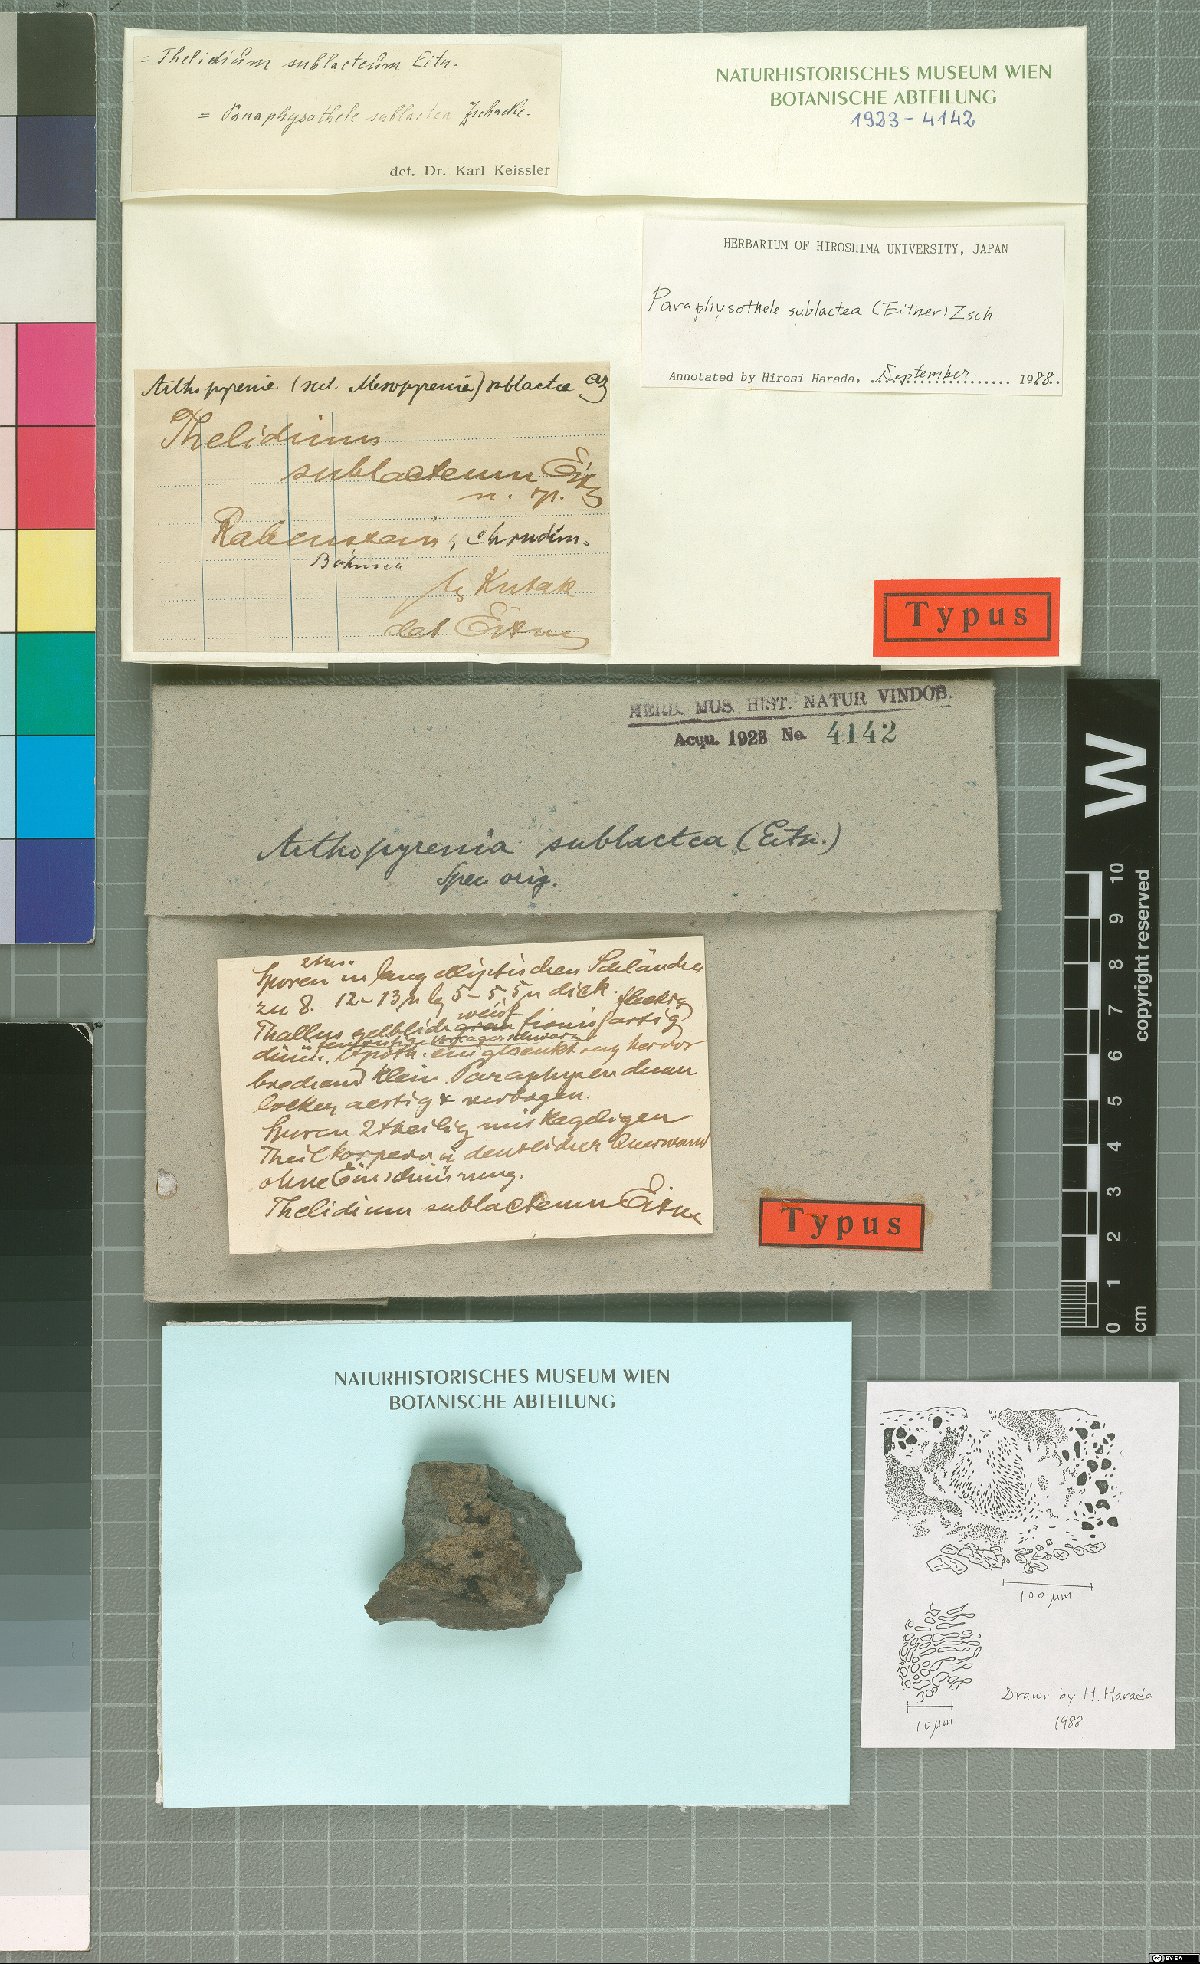 = Thelidium sublacteum Eitn.
= Paraphysothele sublactea Zschacke.
det. Dr. Karl Keissler
NATURHISTORISCHES MUSEUM WIEN
BOTANISCHE ABTEILUNG
1923-4142
HERBARIUM OF HIROSHIMA UNIVERSITY, JAPAN
Paraphysothele sublactea (Eitner) Zsch
Annotated by Hirosi Harada, September 1988.
Arthopyrenia (sect. Mesopyrenia) sublactea
Thelidium
sublacteum Eitn
n. sp.
Rabenstein, Chrudim.
Böhmen
lg Kutak
det Eitner
Typus
HERB. MUS. HIST. NATUR VINDOB.
Acqu. 1923 No. 4142
Arthopyrenia sublactea (Eitn.)
Spec orig.
Sporen in lang elliptischen Schläuchen
zu 8. 12-13 µ lg 5-5,5 µ dick.
Thallus gelblich weiß firnisartig
dünn. Apoth. eingesenkt hervor
brechend klein. Paraphysen dünn
locker aestig & verbogen.
Sporen 2theilig mit kegeligen
Theilkörpern u deutlicher Querwand
ohne Einschnürung.
Thelidium sublacteum Eitner
Typus
NATURHISTORISCHES MUSEUM WIEN
BOTANISCHE ABTEILUNG
100 µm
10 µm
Drawn by H. Harada
1988
W
0 1 2 3 4 5 6 7 8 9 10
cm
copyright reserved